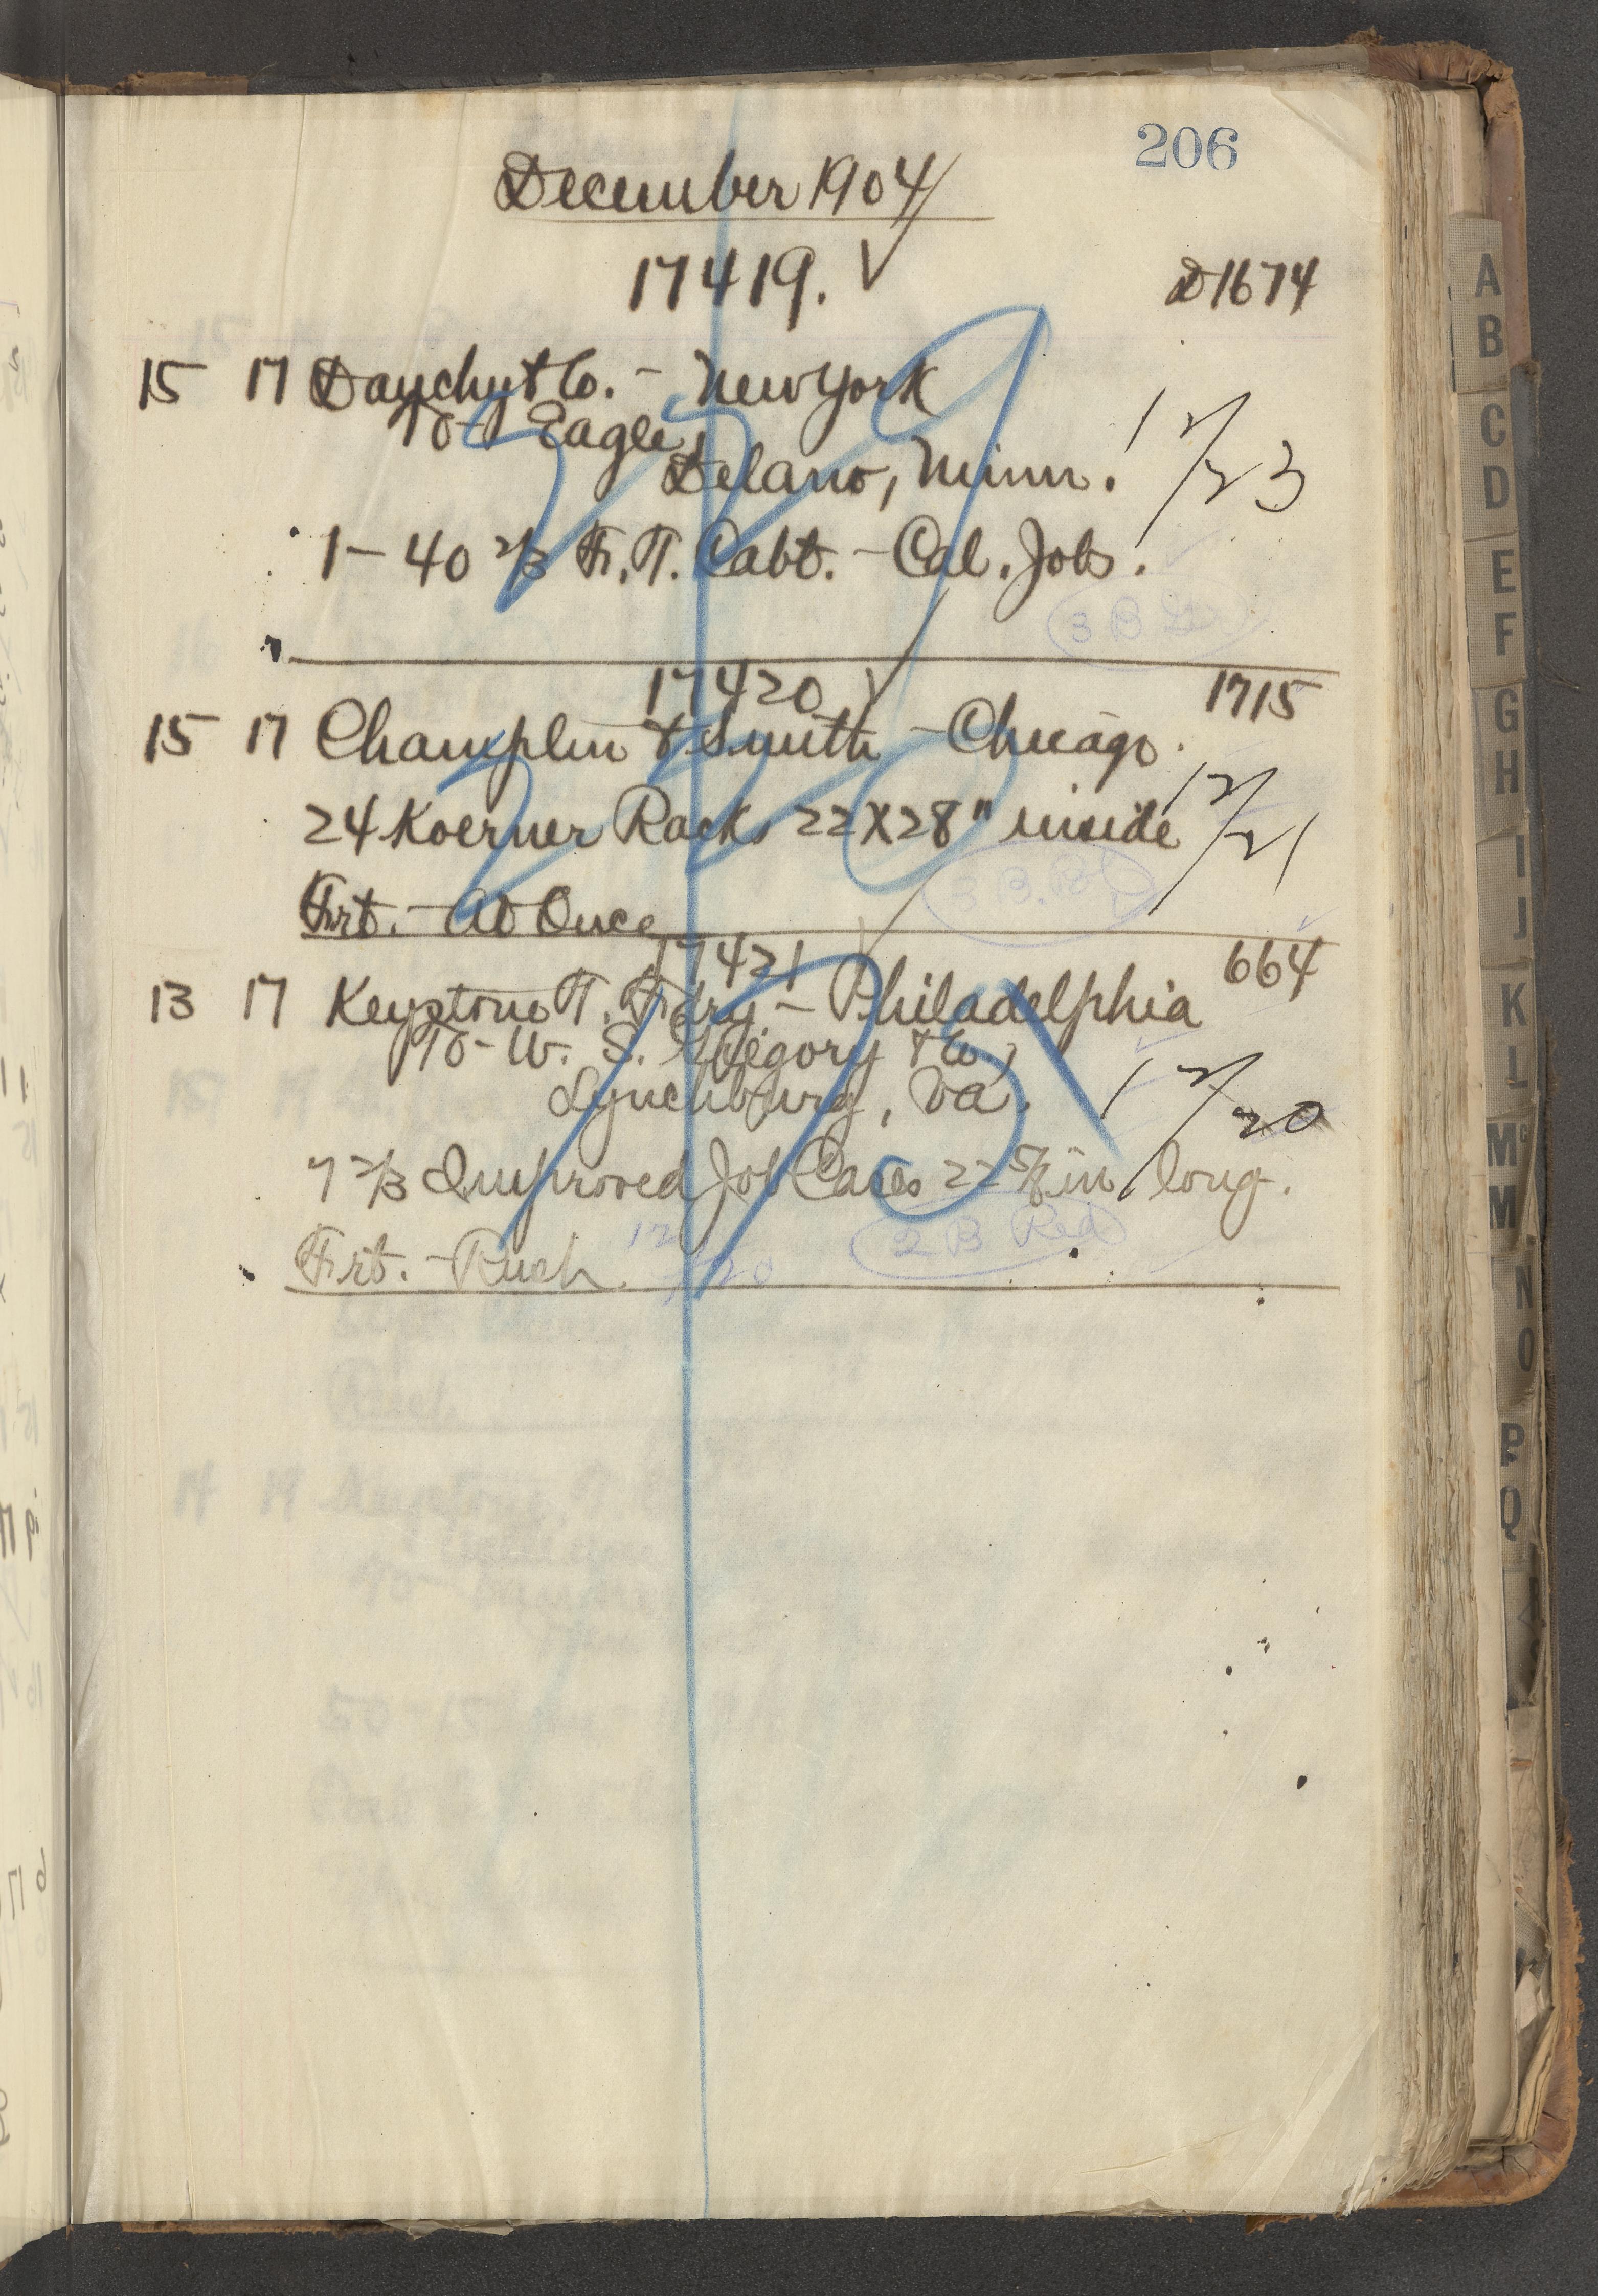 206
December 1904
17419. √
D1674
15 17 Dauchy & Co. - New York
To - Eagle,
Delano, Minn.
12/23
1 - 40 2/3 Fr. T. Cabt. - Cal. Jobs.
3 B
17420 √
1715
15 17 Champlin & Smith - Chicago.
24 Koerner Racks 22 X 28" inside
12/21
Frt. - At Once
17421
664
13 17 Keystone T. Fdry - Philadelphia
To - W. S. Gregory & Co,
Lynchburg, Va.
12/20
7 2/3 Improved Job Cases 22 5/8 in long.
Frt. - Rush
12/20
2 B Red
A
B
C
D
E
F
G
H
I
J
K
L
Mc
M
N
O
P
Q